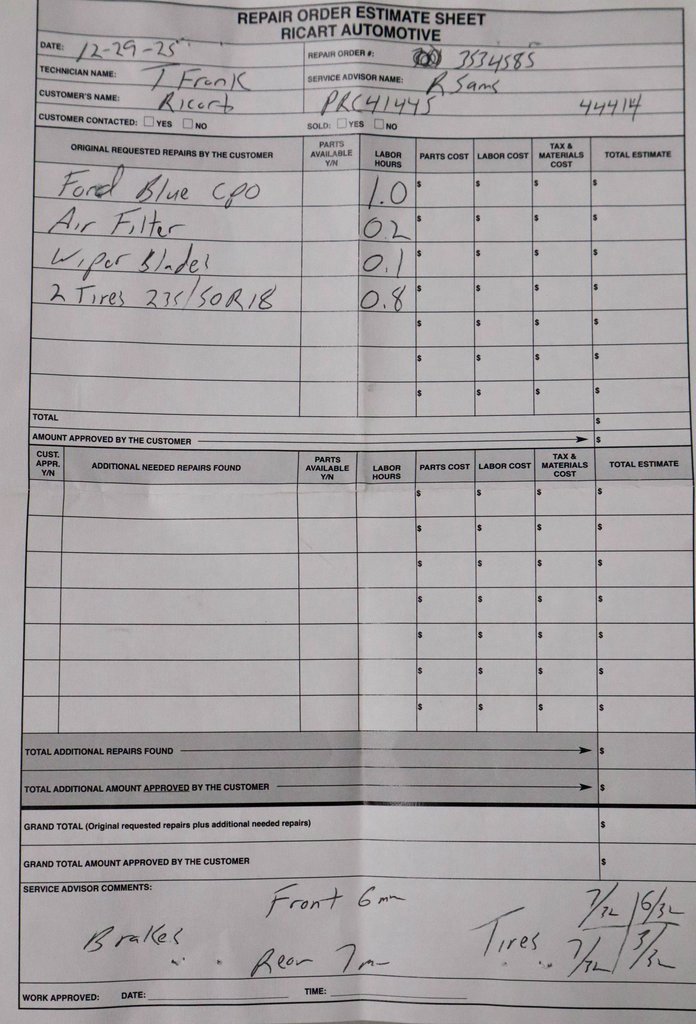 REPAIR ORDER ESTIMATE SHEET
RICART AUTOMOTIVE
DATE: 12-29-25
REPAIR ORDER #: 3534585
TECHNICIAN NAME: T Frank
SERVICE ADVISOR NAME: R Sams
CUSTOMER'S NAME: Ricart
PRC41445 44414
CUSTOMER CONTACTED: YES NO
SOLD: YES NO
ORIGINAL REQUESTED REPAIRS BY THE CUSTOMER PARTS AVAILABLE Y/N LABOR HOURS PARTS COST LABOR COST TAX & MATERIALS COST TOTAL ESTIMATE
Ford Blue CPO 1.0 $ $ $ $
Air Filter 0.2 $ $ $ $
Wiper Blades 0.1 $ $ $ $
2 Tires 235/50R18 0.8 $ $ $ $
$ $ $ $
$ $ $ $
$ $ $ $
TOTAL $
AMOUNT APPROVED BY THE CUSTOMER $
CUST. APPR. Y/N ADDITIONAL NEEDED REPAIRS FOUND PARTS AVAILABLE Y/N LABOR HOURS PARTS COST LABOR COST TAX & MATERIALS COST TOTAL ESTIMATE
$ $ $ $
$ $ $ $
$ $ $ $
$ $ $ $
$ $ $ $
$ $ $ $
$ $ $ $
TOTAL ADDITIONAL REPAIRS FOUND $
TOTAL ADDITIONAL AMOUNT APPROVED BY THE CUSTOMER $
GRAND TOTAL (Original requested repairs plus additional needed repairs) $
GRAND TOTAL AMOUNT APPROVED BY THE CUSTOMER $
SERVICE ADVISOR COMMENTS:
Front 6mm 7/32 6/32
Brakes Tires
Rear 7m 7/32 3/32
WORK APPROVED: DATE: TIME: